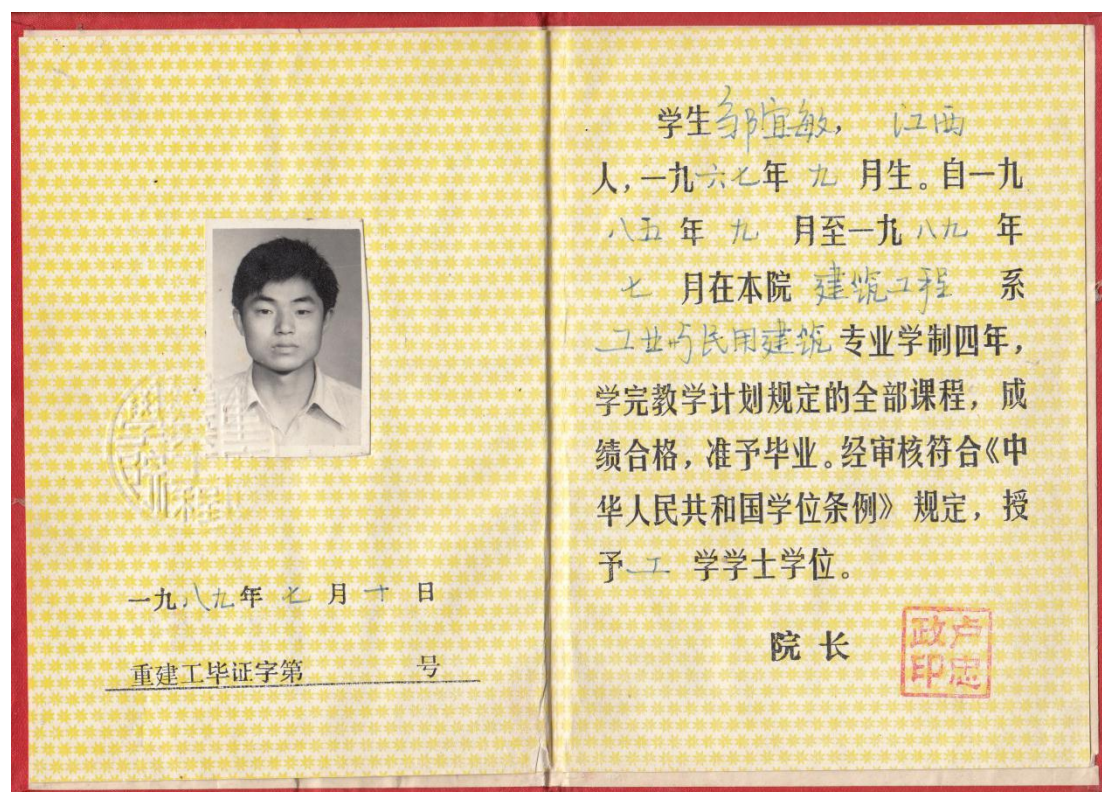 一九八九年 七 月 十 日
重建工毕证字第 号
学生邹宜敏， 江西
人，一九六七年 九 月生。自一九
八五 年 九 月至一九八九 年
七 月在本院 建筑工程 系
工业与民用建筑 专业学制四年，
学完教学计划规定的全部课程，成
绩合格，准予毕业。经审核符合《中
华人民共和国学位条例》规定，授
予 工 学学士学位。
院长
卢忠政印